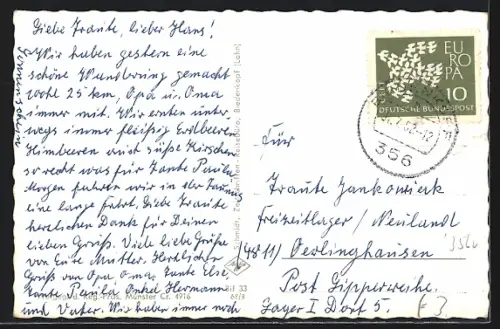 Liebe Traute, lieber Hans!
Wir haben gestern eine
schöne Wanderung gemacht
wohl 25 km, Opa u. Oma
immer mit. Wir ernten unter-
wegs immer fleißig Erdbeeren
Himbeeren und süße Kirschen
so recht was für Tante Paula
Morgen fahren wir in den Taunus
eine lange Fahrt. Liebe Traute
herzlichen Dank für Deinen
lieben Gruß. Viele liebe Grüße
von Eure Mutter. Herzliche
Grüße von Opa Oma, Tante Else
Tante Paula Onkel Hermann
und Vater. Wir haben immer noch
Sonnenschein
Biedenkopf (Lahn)
Reg.-Präs. Münster Cr. 4916
Bi 33
69/3
EUROPA
10
DEUTSCHE BUNDESPOST
356
Für
Traute Jankowiak
Freizeitlager / Neuland
(4811) Oerlinghausen
Post Lipperreihe.
Lager I Dorf 5.